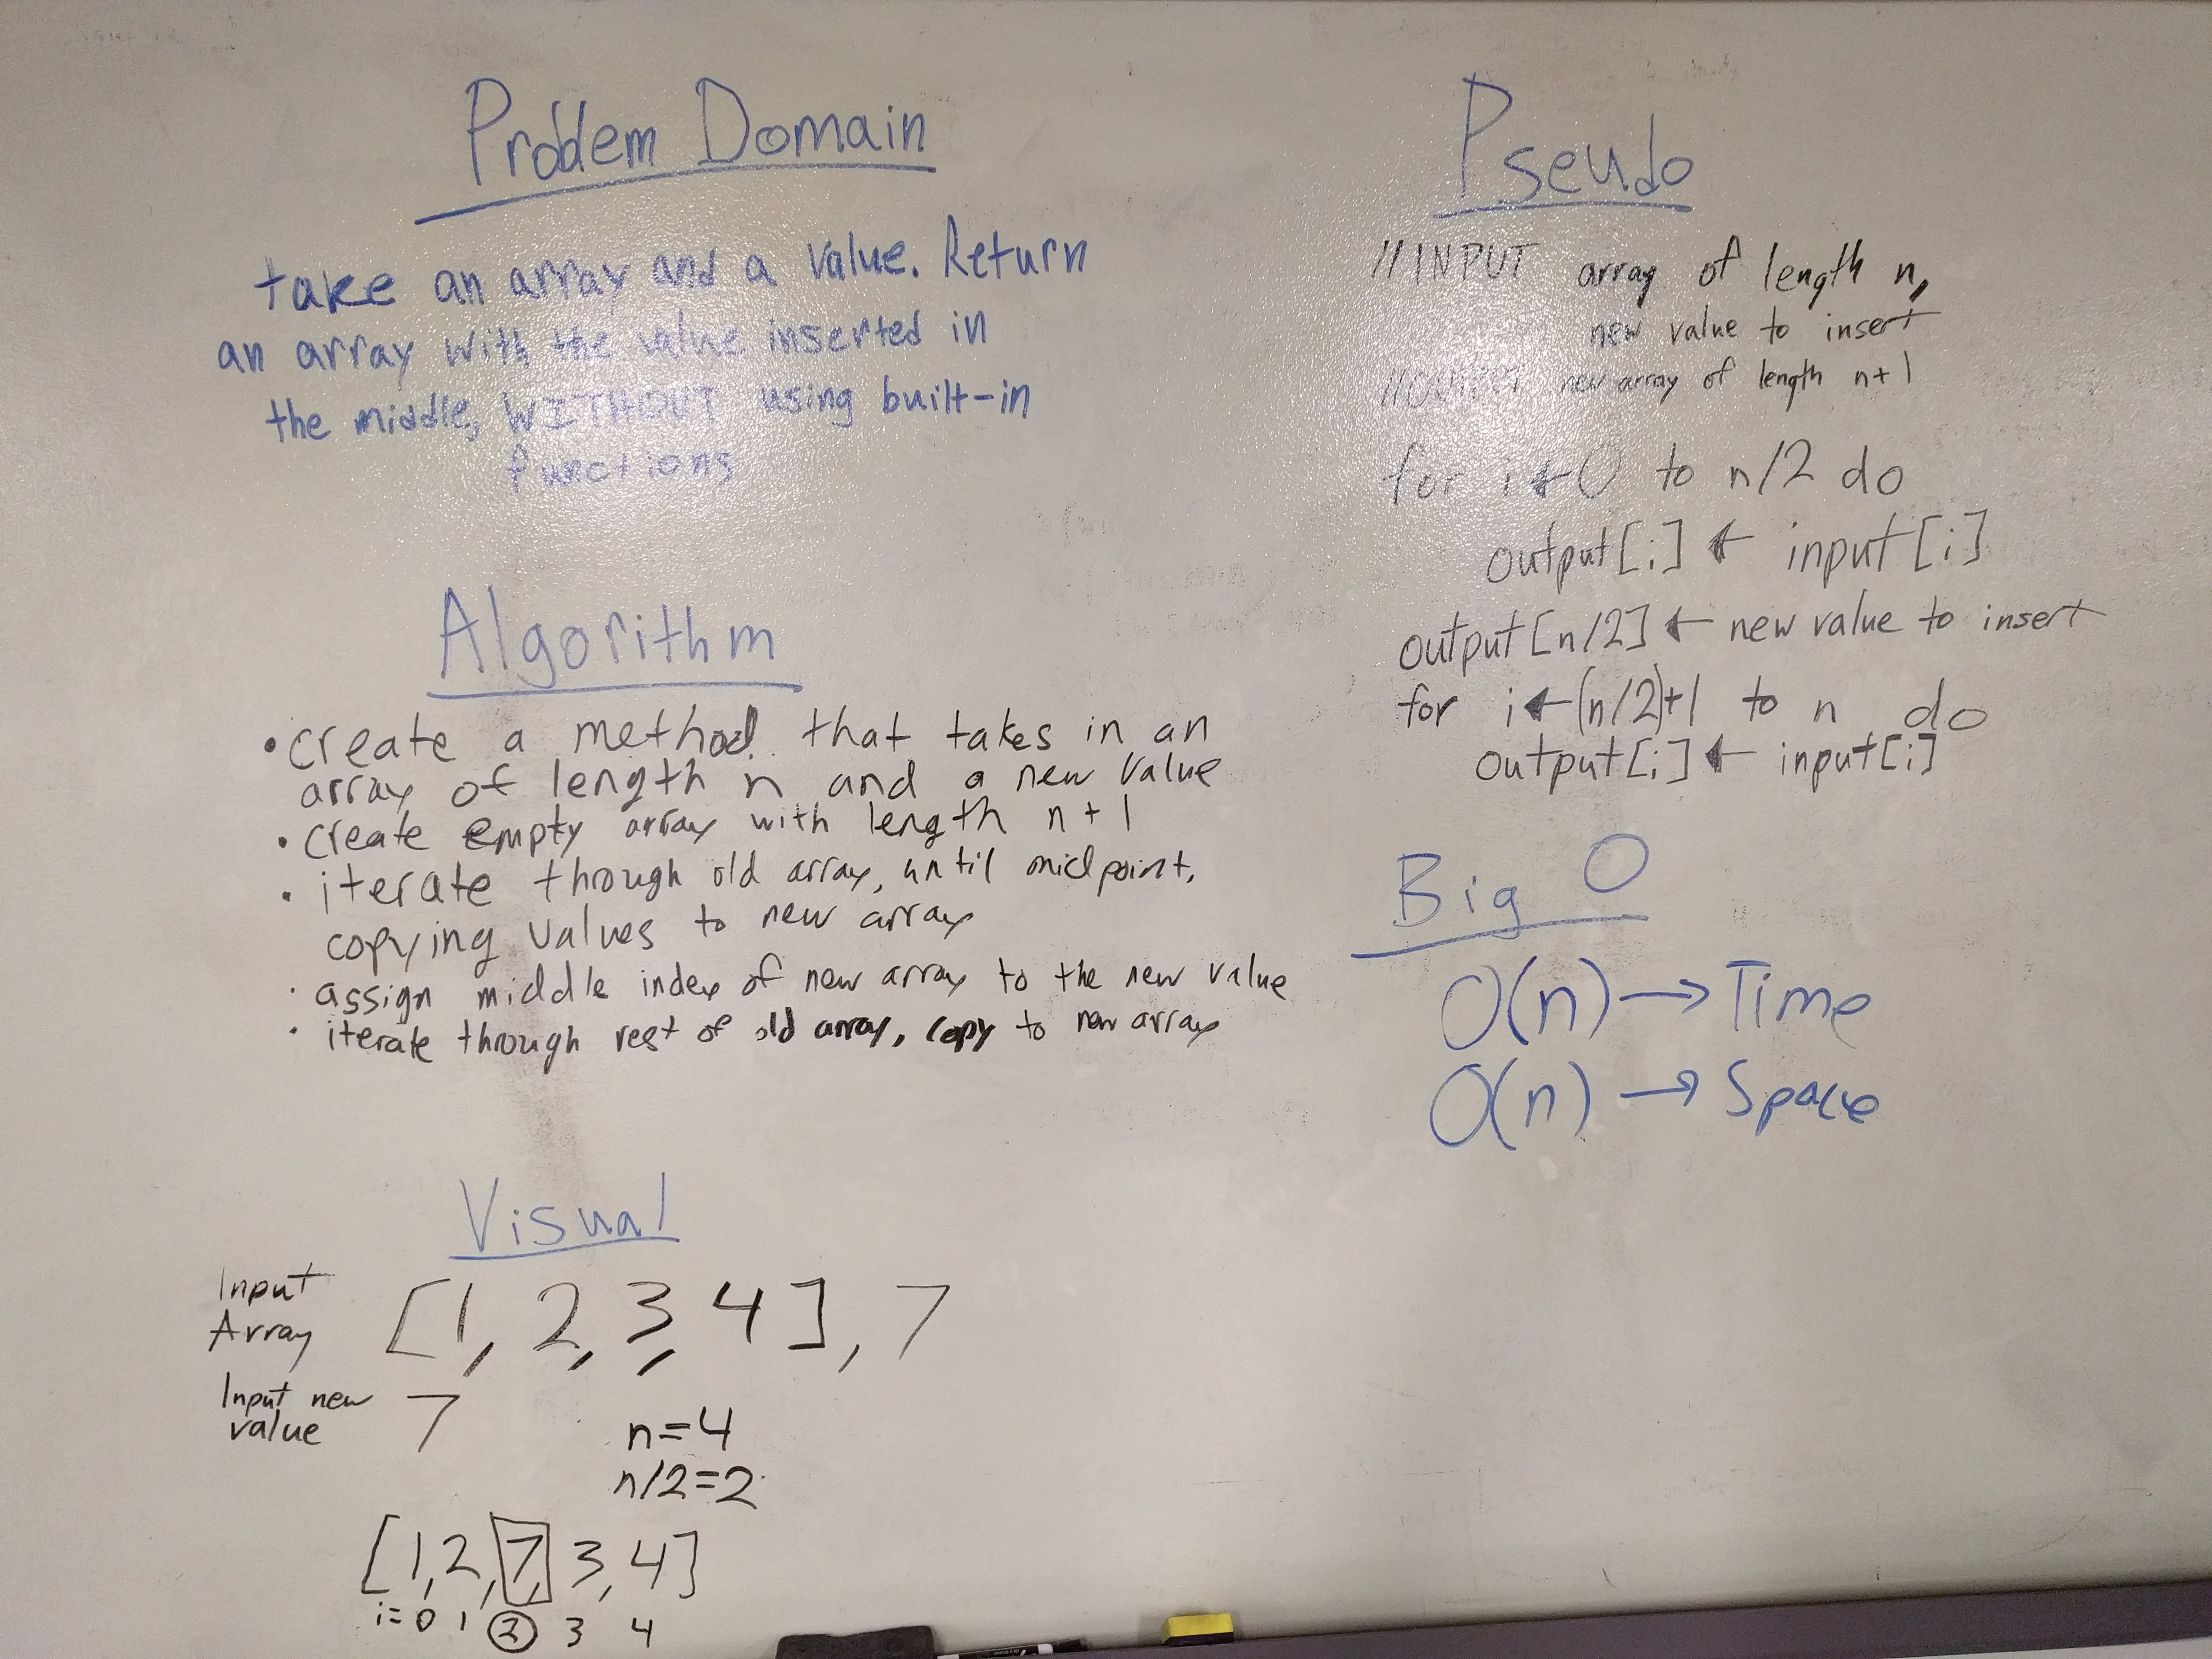 Problem Domain
take an array and a value. Return
an array with the value inserted in
the middle, WITHOUT using built-in
functions
Algorithm
• create a method that takes in an
array of length n and a new value
• create empty array with length n + 1
• iterate through old array, until midpoint,
copying values to new array
• assign middle index of new array to the new value
• iterate through rest of old array, copy to new array
Visual
Input
Array
[1, 2, 3, 4], 7
Input new
value
7
n=4
n/2=2
[1,2,7,3,4]
i=0 1 2 3 4
Pseudo
//INPUT array of length n,
new value to insert
//OUTPUT new array of length n+1
for i ← 0 to n/2 do
output[i] ← input[i]
output[n/2] ← new value to insert
for i ← (n/2)+1 to n do
output[i] ← input[i]
Big O
O(n) → Time
O(n) → Space